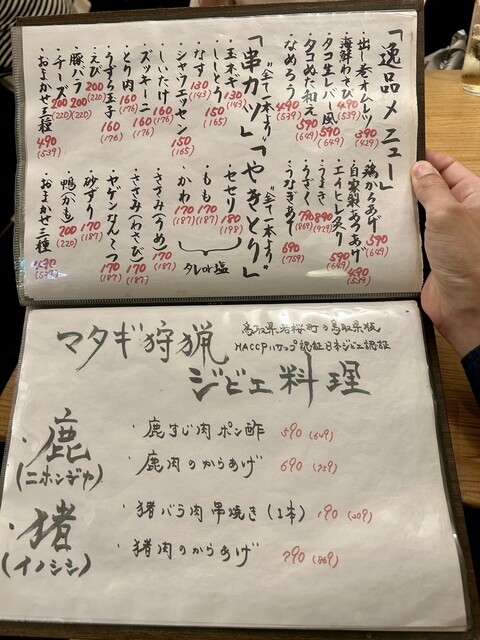 「逸品メニュー」
出し巻オムレツ 390(429)
海鮮わさび 590(649)
タコ生レバ風 590(649)
タコぬた和え 590(649)
なめろう 490(539)
鶏からあげ 590(649)
自家製あつあげ 490(539)
エイヒレ炙り 590(649)
うまき 890(929)
うざく 790(869)
うなぎあて 690(759)
「串カツ」“全て一本より”
玉ネギ 130(143)
ししとう 150(165)
なす 130(143)
シャウエッセン 150(165)
しいたけ 160(176)
ズッキーニ 160(176)
とり肉 160(176)
うずら玉子 160(176)
えび 200(220)
豚バラ 200(220)
チーズ 200(220)
おまかせ三種 490(539)
「やきとり」“全て一本より”
セセリ 180(198)
もも 170(187)
かわ 170(187)
タレor塩
ささみ(うめ) 170(187)
ささみ(わさび) 170(187)
ヤゲンなんこつ 170(187)
砂ずり 170(187)
鴨(かも) 200(220)
おまかせ三種 490(539)
マタギ狩猟
鳥取県若桜町 鳥取県版
HACCPハサップ認証日本ジビエ認証
ジビエ料理
・鹿
(ニホンヂカ)
・鹿すじ肉ポン酢 590(649)
・鹿肉のからあげ 690(759)
・猪
(イノシシ)
・猪バラ肉串焼き(1本) 190(209)
・猪肉のからあげ 790(869)